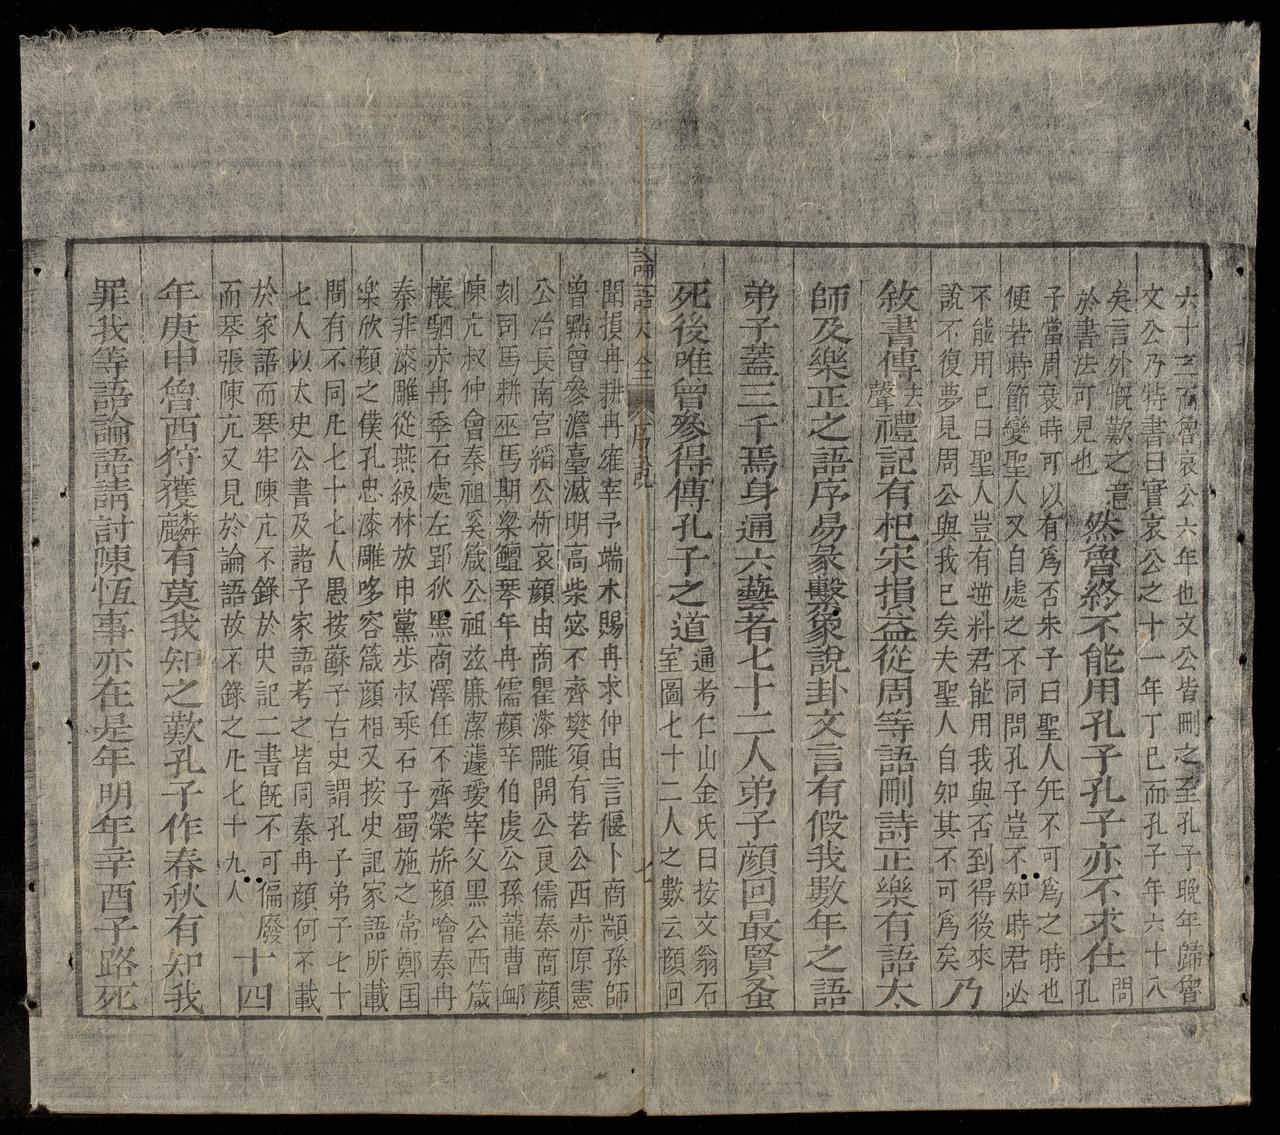 六十三而魯哀公六年也文公皆刪之至孔子晚年歸魯
文公乃特書曰實哀公之十一年丁巳而孔子年六十八
矣言外慨歎之意
於書法可見也
然魯終不能用孔子孔子亦不求仕
問
孔
子當周衰時可以有爲否朱子曰聖人无不可爲之時也
便若時節變聖人又自處之不同問孔子豈不知時君必
不能用已曰聖人豈有逆料君能用我與否到得後來
說不復夢見周公與我已矣夫聖人自知其不可爲矣
乃
敘書傳去聲禮記有杞宋損益從周等語刪詩正樂有語太
師及樂正之語序易彖繫象說卦文言有假我數年之語
弟子蓋三千焉身通六藝者七十二人弟子顏回最賢蚤
死後唯曾參得傳孔子之道
通考仁山金氏曰按文翁石
室圖七十二人之數云顏回
論語大全 序說 七
閔損冉耕冉雍宰予端木賜冉求仲由言偃卜商顓孫師
曾點曾參澹臺滅明高柴宓不齊樊須有若公西赤原憲
公冶長南宮縚公析哀顏由商瞿漆雕開公良儒秦商顏
刻司馬耕巫馬期梁鱣琴牢冉儒顏辛伯虔公孫龍曹卹
陳亢叔仲會秦祖奚箴公祖茲廉潔蘧瑗宰父黑公西箴
穰駟赤冉季石處左郢狄黑商澤任不齊榮旂顏噲秦冉
秦非漆雕從燕級林放申黨步叔乘石子蜀施之常鄭国
樂欣顏之僕孔忠漆雕哆容箴顏相又按史記家語所載
間有不同凡七十七人愚按蘇子古史謂孔子弟子七十
七人以太史公書及諸子家語考之皆同秦冉顏何不載
於家語而琴牢陳亢不錄於史記二書旣不可偏廢
而琴張陳亢又見於論語故不錄之凡七十九人
十四
年庚申魯西狩獲麟有莫我知之歎孔子作春秋有知我
罪我等語論語請討陳恆事亦在是年明年辛酉子路死